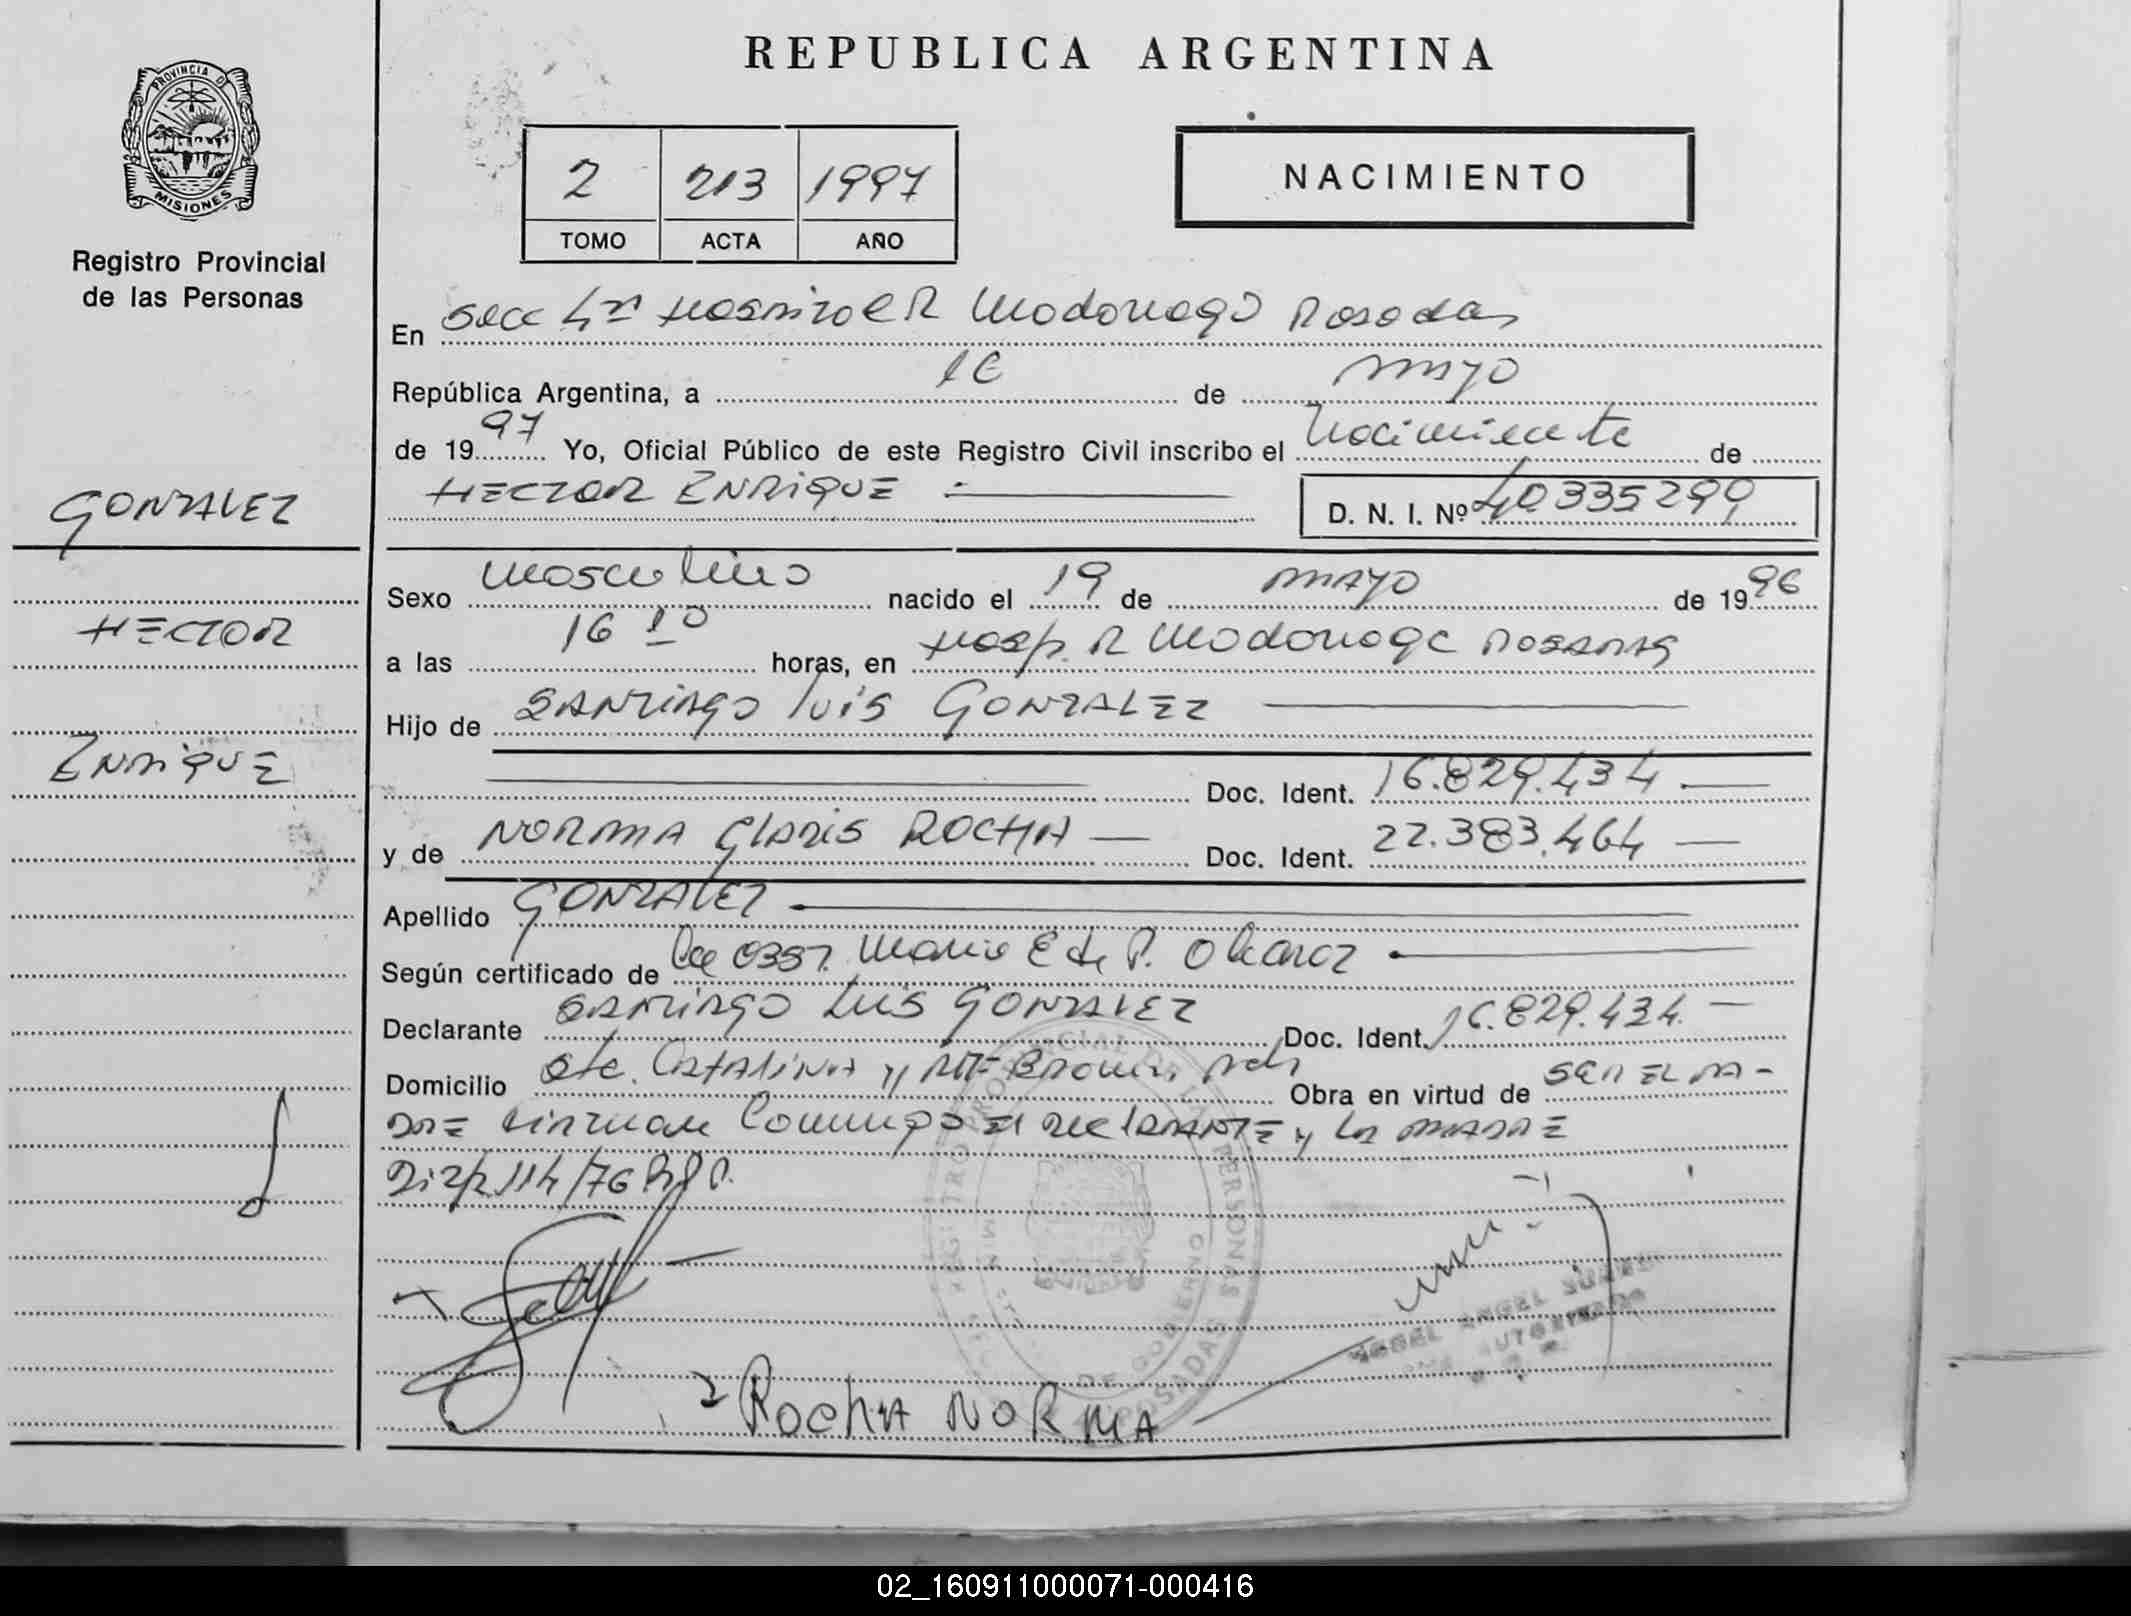 REPUBLICA ARGENTINA
PROVINCIA DE
MISIONES
Registro Provincial
de las Personas
2 213 1997
TOMO ACTA AÑO
NACIMIENTO
En Secc 4ª Hospital R Madariaga Posadas
República Argentina, a 16 de mayo
de 1997 Yo, Oficial Público de este Registro Civil inscribo el Nacimiento de
HECTOR ENRIQUE
D. N. I. Nº 40335299
GONZALEZ
HECTOR
ENRIQUE
Sexo Masculino nacido el 19 de mayo de 1996
a las 16 10 horas, en Hosp. R Madariaga Posadas
Hijo de SANTIAGO LUIS GONZALEZ
Doc. Ident. 16.829.434
y de NORMA GLADIS ROCHA Doc. Ident. 22.383.464
Apellido GONZALEZ
Según certificado de Maria E de P.
Declarante SANTIAGO LUIS GONZALEZ Doc. Ident. 16.829.434.
Domicilio Sta. CATALINA y Alte Brown, Pdas Obra en virtud de SER EL PA-
DRE Firman Conmigo El declarante y la MADRE
Disp 114/76 R.P.P.
REGISTRO PROVINCIAL DE LAS PERSONAS
DE GOBIERNO
POSADAS
ANGEL
ROCHA NORMA
02_160911000071-000416